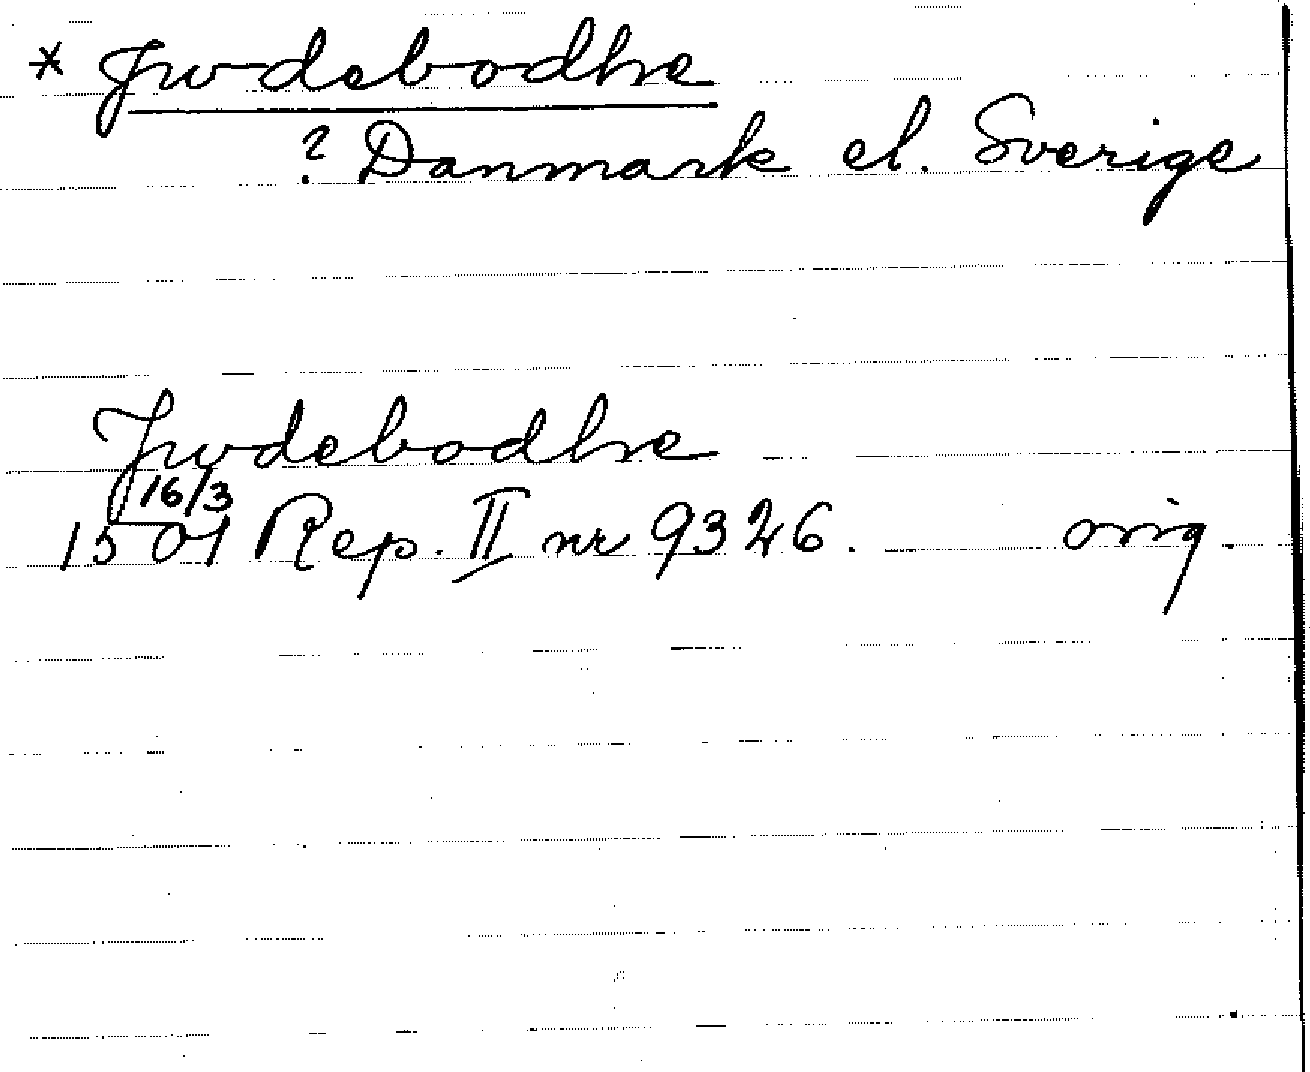 * Jwdebodhe
? Danmark el. Sverige
Jwdebodhe
16/3
1501 Rep. II nr 9326. orig.